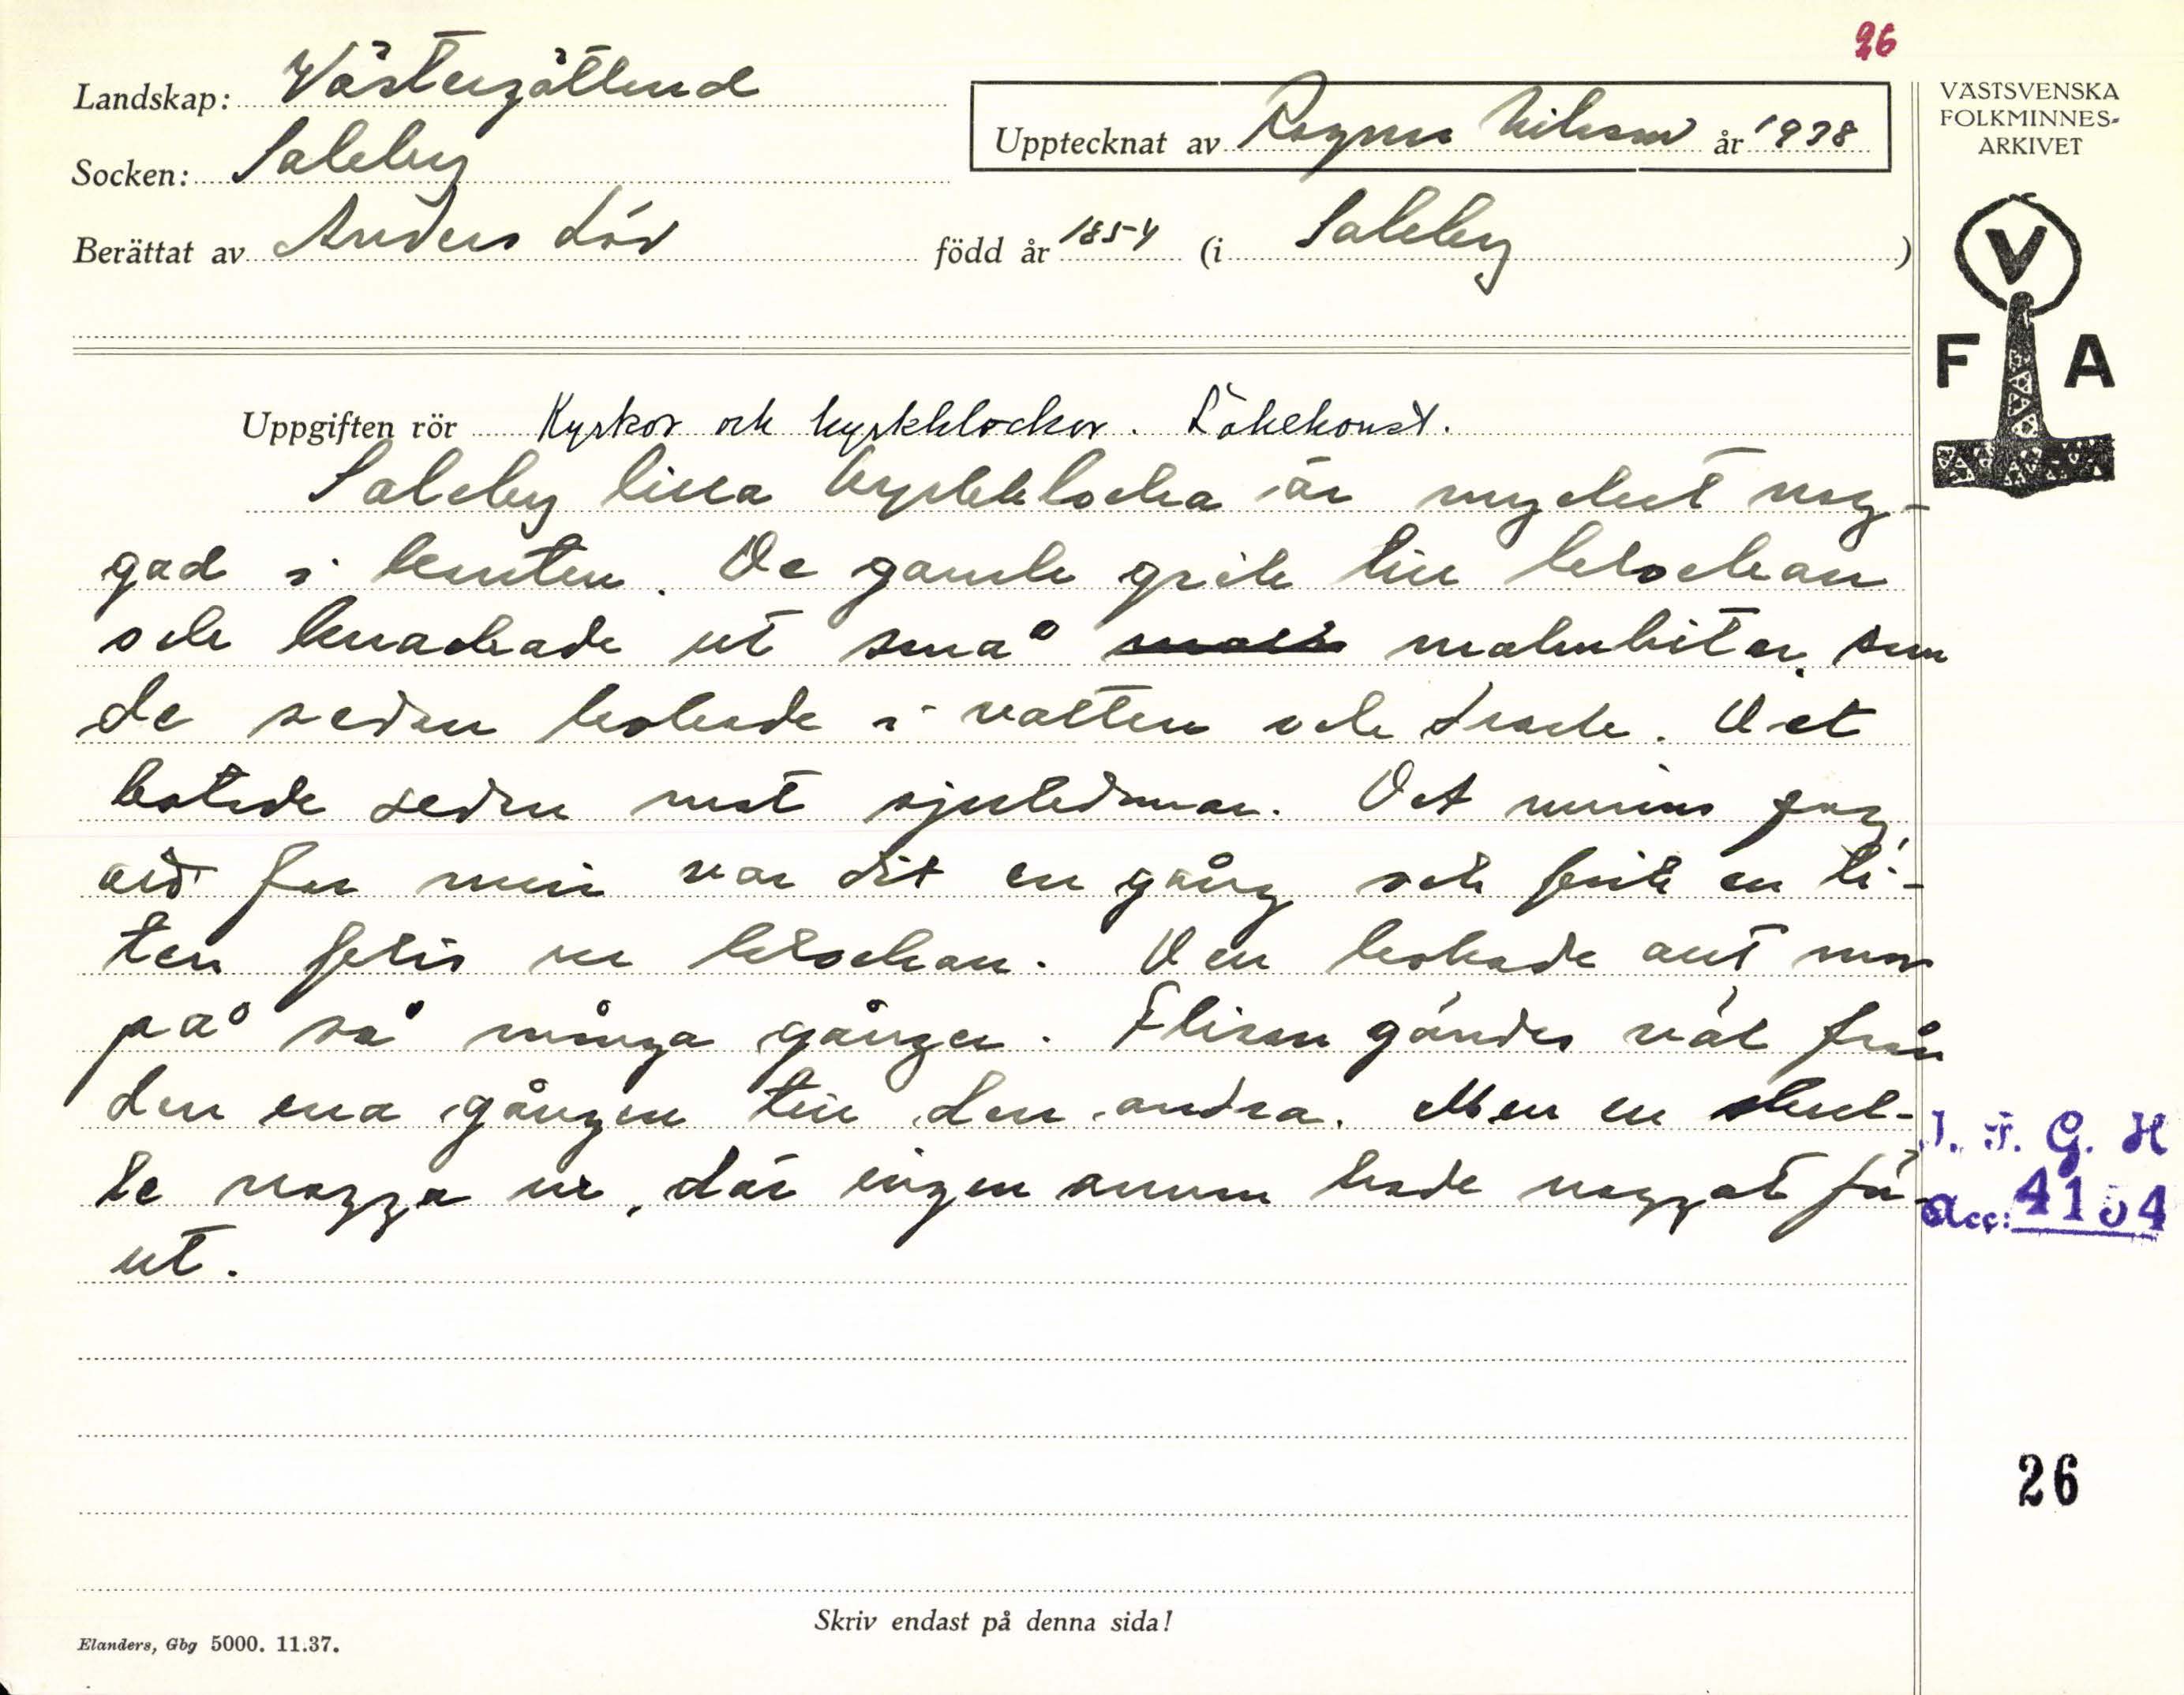 26
Landskap: Västergötland
Socken: Saleby
Upptecknat av Ragnar Nilsson år 1938
Berättat av Anders Löv född år 1854 (i Saleby)
VÄSTSVENSKA
FOLKMINNES-
ARKIVET
V
F A
Uppgiften rör Kyrkor och kyrkklockor. Läkekonst.
Saleby lilla kyrkklocka är mycket nag-
gad i kanten. De gamle gick till klockan
och knackade ut små malmbitar, som
de sedan kokade i vatten och drack. Det
botade sedan mot sjukdomar. Det minns jag,
att far min var dit en gång och fick en li-
ten flis ur klockan. Den kokade att mor
på så många gånger. Flisan gömdes väl från
den ena gången till den andra. Men en skul-
le nagga ur, där ingen annan hade naggat för-
ut.
I. F. G. H
Acc: 4154
26
Skriv endast på denna sida!
Elanders, Gbg 5000. 11.37.